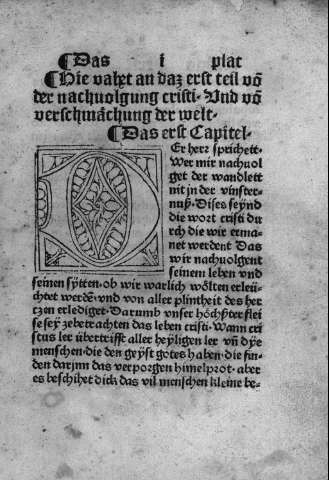 ¶Das i plat
¶Hie vahet an daz erst teil vō
der nachuolgung cristi· Und vō
verschmächung der welt·
¶Das erst Capitel·
DEr herr sprichett·
Wer mir nachuol
get der wandlett
nit in der vinster-
nuß· Dises seynd
die wort cristi du
rch die wir erma-
net werdent Das
wir nachuolgent
seinem leben vnd
seinen sytten· ob wir warlich wölten erleü-
chtet werdē· vnd von aller plintheit des her
tzen erlediget· Darumb vnser höchster flei
sesey zebetrachten das leben cristi· Wann cri
stus ler übertrifft aller heyligen ler vn̄ dye
menschen· die den geyst gotes haben· die fin-
den darjnn das verporgen himelprot· aber
es beschihet dick das vil menschen kleine be-